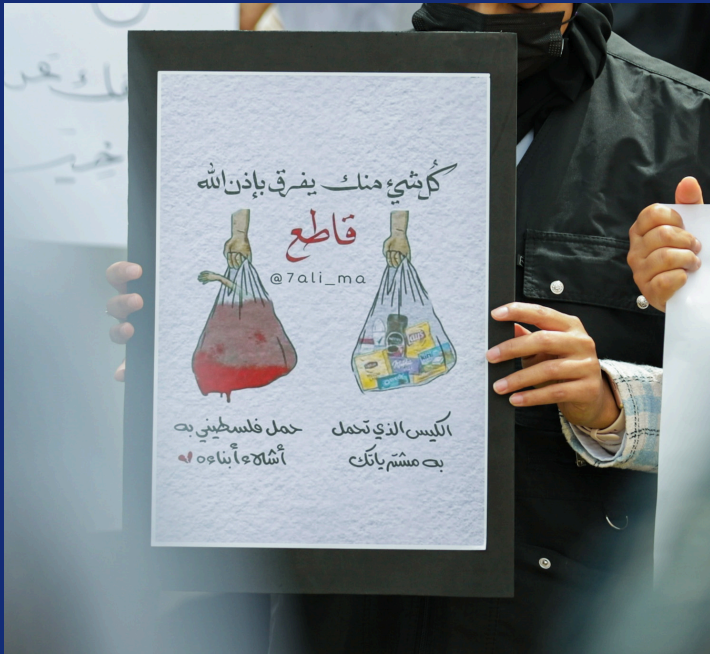 كُل شيء منك يفرق بإذن الله
قاطع
@7ali_ma
الكيس الذي تحمل
به مشترياتك
حمل فلسطيني به
أشلاء أبناءه